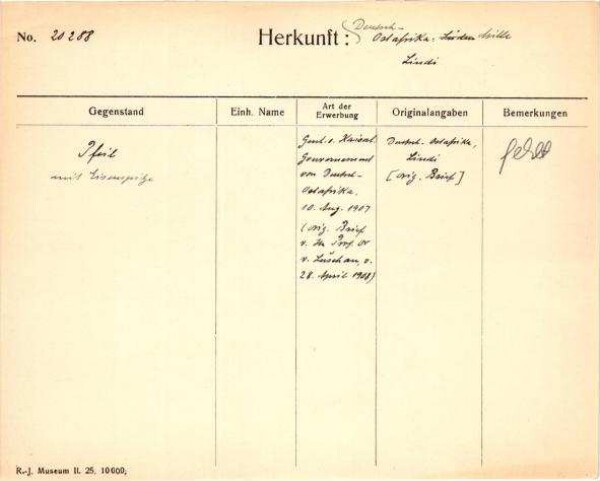 No. 20288
Herkunft: Deutsch-
Ostafrika. Süden Mitte
Lindi
Gegenstand
Einh. Name
Art der
Erwerbung
Originalangaben
Bemerkungen
Pfeil
mit Eisenspitze
v. Kaiserl.
Gouvernement
von Deutsch-
Ostafrika.
10. Aug. 1907
(orig. Brief
v. Hn Prof. Dr
v. Luschan, v.
28. April 1908)
Deutsch-Ostafrika,
Lindi
[orig. Brief]
fehlt
R.-J. Museum II. 25. 10000.